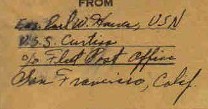 FROM
Ens. Earl W. , USN
U.S.S. Curtiss
c/o Fleet Post Office
San Francisco, Calif